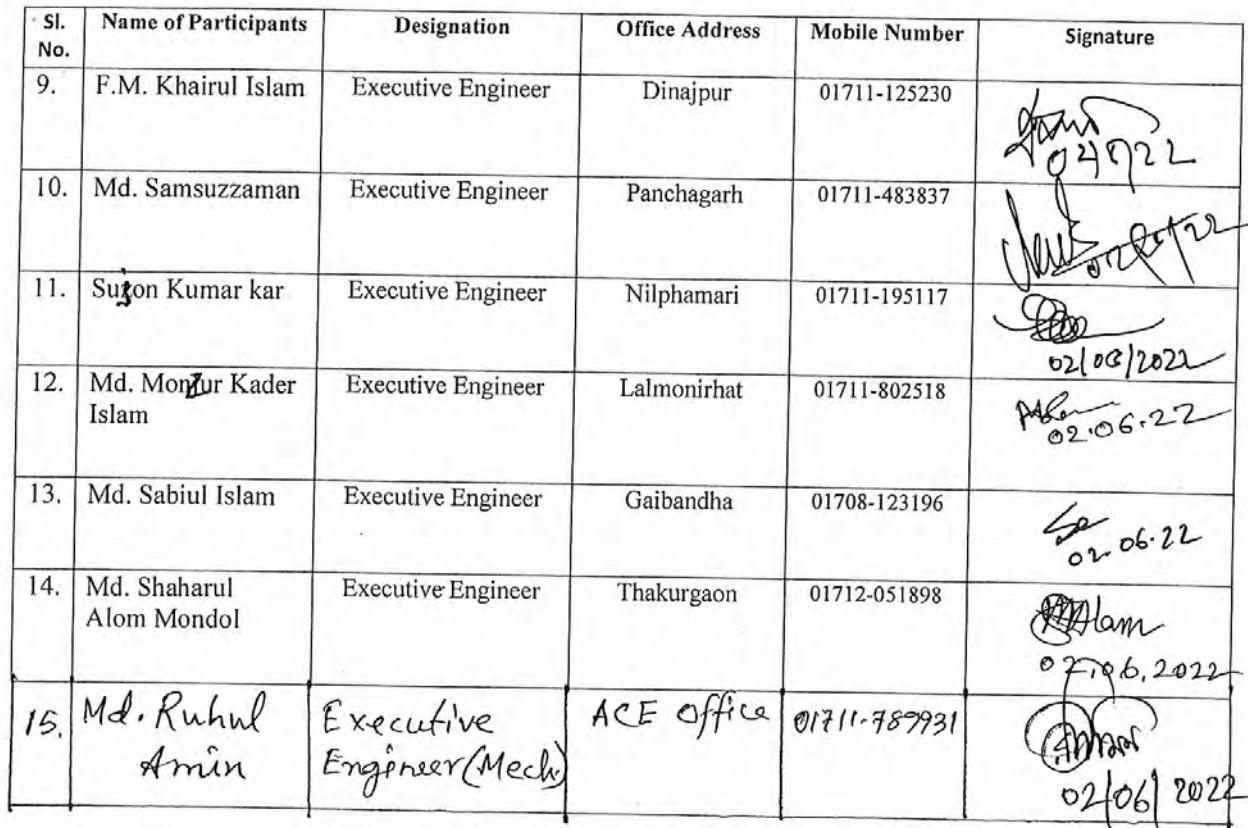 Sl. No. Name of Participants Designation Office Address Mobile Number Signature
9. F.M. Khairul Islam Executive Engineer Dinajpur 01711-125230
10. Md. Samsuzzaman Executive Engineer Panchagarh 01711-483837
11. Sujon Kumar kar Executive Engineer Nilphamari 01711-195117
02/06/2022
12. Md. Monzur Kader Executive Engineer Lalmonirhat 01711-802518
Islam
02.06.22
13. Md. Sabiul Islam Executive Engineer Gaibandha 01708-123196
02.06.22
14. Md. Shaharul Executive Engineer Thakurgaon 01712-051898
Alom Mondol
02.06.2022
15. Md. Ruhul Executive ACE Office 01711-789931
Amin Engineer (Mech.)
02/06/2022